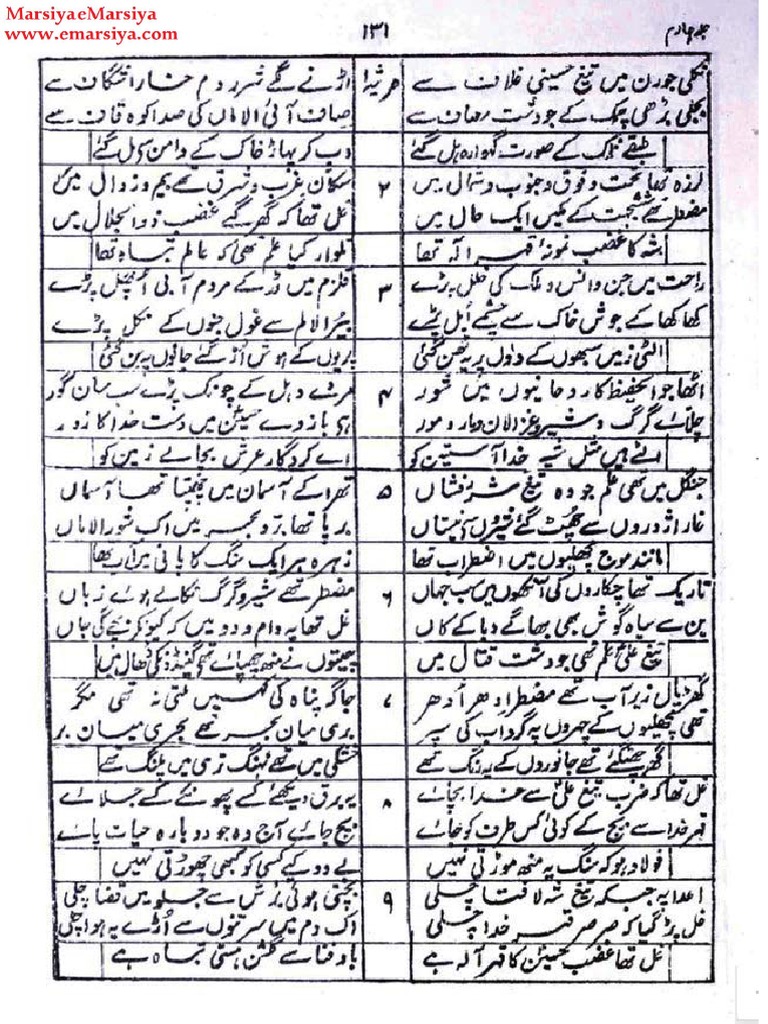 MarsiyaeMarsiya
www.emarsiya.com
جلد چہارم
۱۳۱
مرثیہ ۱
نکلی جو رن میں تیغ حسینی غلاف سے
اڑنے لگے شرر دم خارا شگاف سے
بجلی بڑھی چمک کے جو دشت مصاف سے
صاف آئی الاماں کی صدا کوہ قاف سے
طبقے فلک کے صورت گہوارہ ہل گئے
دب کر پہاڑ خاک کے دامن سے مل گئے
۲
لرزہ تھا تحت و فوق و جنوب و شمال میں
سکان غرب و شرق تھے بیم و زوال میں
مضطر تھے ششجہت کے مکیں ایک حال میں
غل تھا کہ گھر گئے غضب ذوالجلال میں
شہ کا غضب نمونۂ قہر الہ تھا
تلوار کیا علم تھی کہ عالم تباہ تھا
۳
راحت میں جن و انس و ملک کی خلل پڑے
قلزم میں ڈر کے مردم آبی اچھل پڑے
کھا کھا کے جوش خاک سے چشمے ابل پڑے
بیر الالم سے غول جنوں کے نکل پڑے
الٹی زمیں سبھوں کے دلوں پر یہ ٹھن گئی
پریوں کے ہوش اڑ گئے جانوں پہ بن گئی
۴
اٹھا جو الحفیظ کا روحانیوں میں شور
مردے دہل کے چونک پڑے سب میان گور
چلائے گرگ و شیر و غزالان و مار و مور
ہے بازوے حسین میں دست خدا کا زور
الٹے ہیں مثل شیر خدا آستین کو
اے کردگار عرش بچالے زمین کو
۵
جنگل میں تھی علم جو وہ تیغ شرر فشاں
تھرا کے آسمان میں چھپتا تھا آسماں
غار اژدروں سے چھٹ گئے شیروں سے نیستاں
برپا تھا بر و بحر میں اک شور الاماں
مانند موج مچھلیوں میں اضطراب تھا
زہرہ ہر ایک سنگ کا پانی میں آب تھا
۶
تاریک تھا چکاروں کی آنکھوں میں سب جہاں
مضطر تھے شیر و گرگ نکالے ہوئے زباں
بن سے سیاہ گوش بھی بھاگے دبا کے کاں
غل تھا یہ دام و دد میں کہ کیونکر بچے گی جاں
تیغ علی علم تھی جو دشت قتال میں
چیتوں نے منھ چھپائے تھے گینڈے کی ڈھال میں
۷
گھڑیال زیر آب تھے مضطر ادھر ادھر
جا گہ پناہ کی کہیں ملتی نہ تھی مگر
تھی مچھلیوں کے چہروں پہ گرداب کی سپر
بری میان بحر تھے بحری میان بر
گھر چھٹ گئے تھے جانوروں کے یہ رنگ تھے
خشکی میں تھے نہنگ تری میں پلنگ تھے
۸
غل تھا کہ ضرب تیغ علی سے خدا بچائے
یہ برق دیکھئے کسے پھونکے کسے جلائے
قہر خدا سے بچ کے کوئی کس طرف کو جائے
بچ جائے آج وہ جو دوبارہ حیات پائے
فولاد ہو کہ سنگ یہ منھ موڑتی نہیں
بے دو کیے کسی کو کبھی چھوڑتی نہیں
۹
اعدا پہ جبکہ تیغ شہ لافتا چلی
بچتی ہوئی برش سے جلو میں قضا چلی
غل پڑ گیا کہ صرصر قہر خدا چلی
اک دم میں سر تنوں سے اڑے یہ ہوا چلی
غل تھا غضب حسین کا قہر آلہ ہے
باد فنا سے گلشن ہستی تباہ ہے